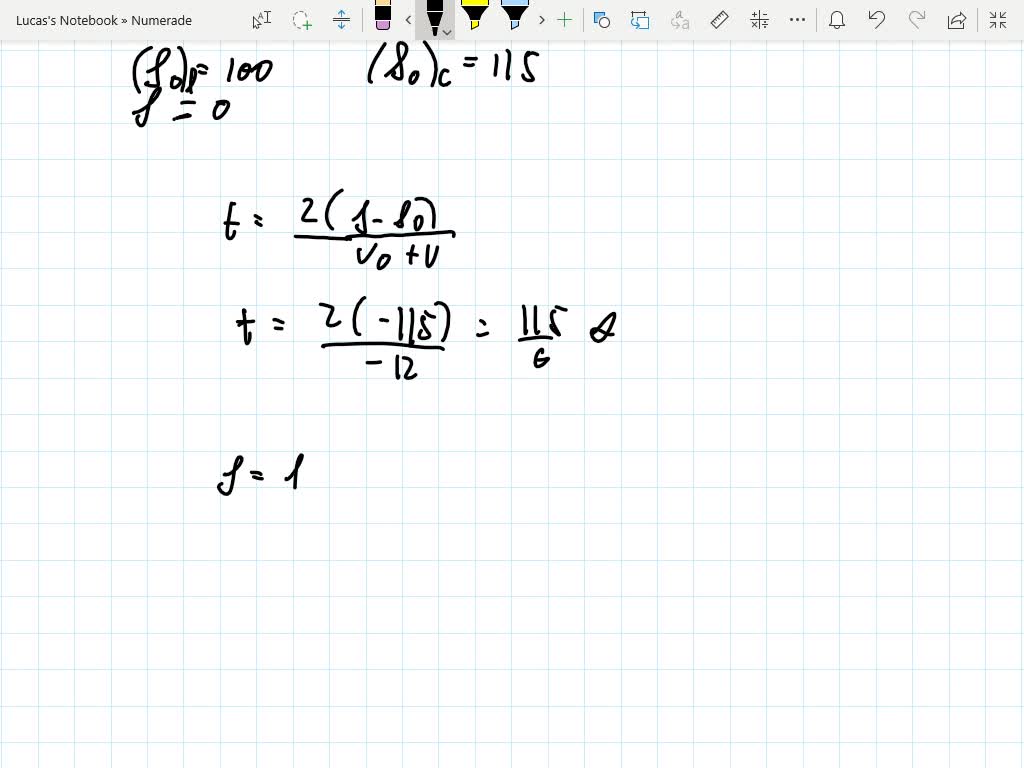 Lucas's Notebook » Numerade
(S₀)ₚ = 100 (S₀)c = 115
S = 0
t = 2(S - S₀) / V₀ + V
t = 2(-115) / -12 = 115 / 6 s
S = S